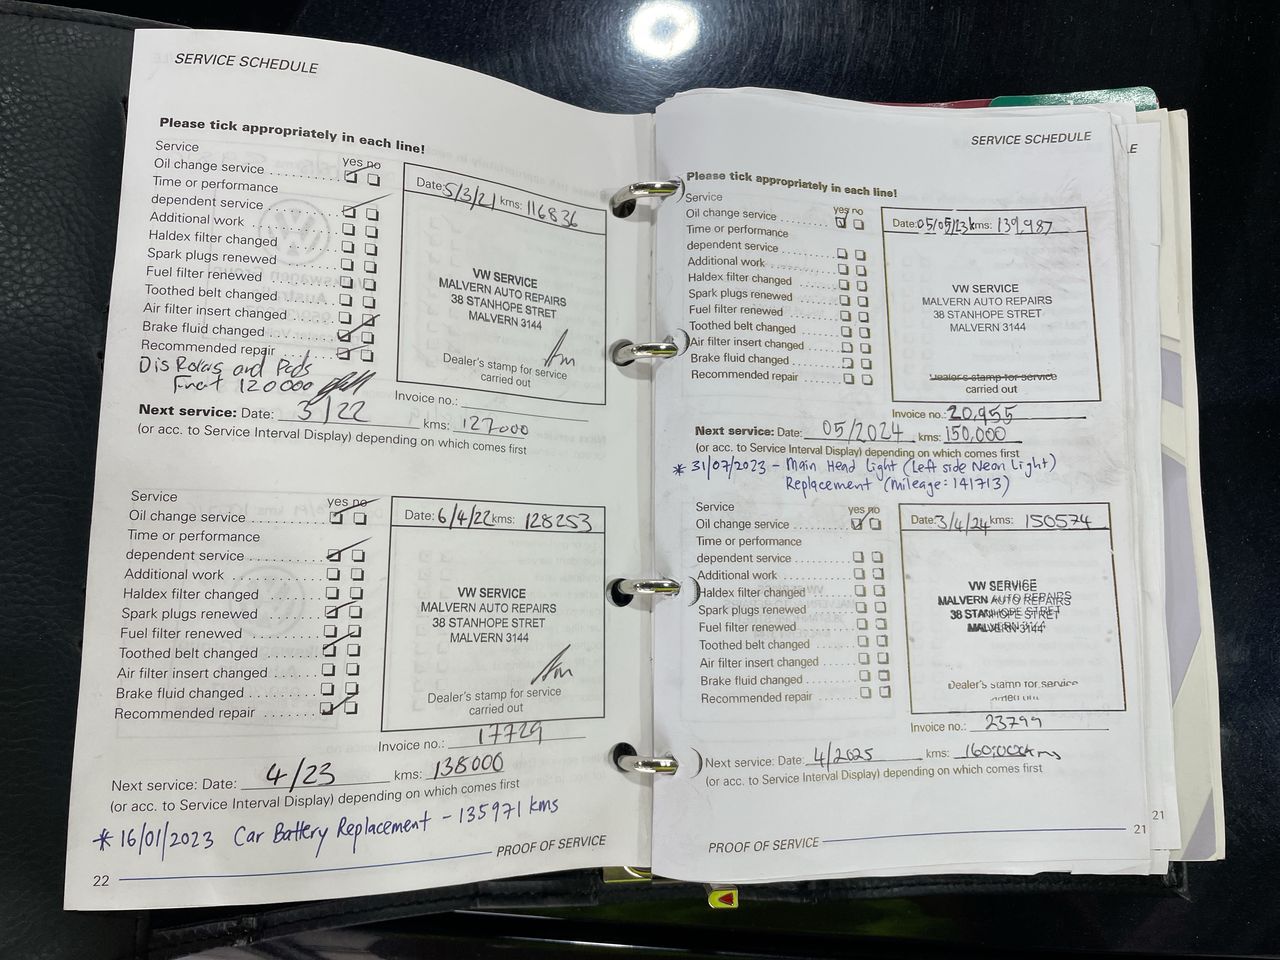 SERVICE SCHEDULE
Please tick appropriately in each line!
Service
yes no
Oil change service
Time or performance
dependent service
Additional work
Haldex filter changed
Spark plugs renewed
Fuel filter renewed
Toothed belt changed
Air filter insert changed
Brake fluid changed
Recommended repair
Dis Rotors and Pads
Front 120000
Date: 5/3/21 kms: 116836
VW SERVICE
MALVERN AUTO REPAIRS
38 STANHOPE STRET
MALVERN 3144
Dealer's stamp for service
carried out
Invoice no.:
Next service: Date: 3/22 kms: 127000
(or acc. to Service Interval Display) depending on which comes first
Service
yes no
Oil change service
Time or performance
dependent service
Additional work
Haldex filter changed
Spark plugs renewed
Fuel filter renewed
Toothed belt changed
Air filter insert changed
Brake fluid changed
Recommended repair
Date: 6/4/22 kms: 128253
VW SERVICE
MALVERN AUTO REPAIRS
38 STANHOPE STRET
MALVERN 3144
Dealer's stamp for service
carried out
Invoice no.: 17729
Next service: Date: 4/23 kms: 138000
(or acc. to Service Interval Display) depending on which comes first
* 16/01/2023 Car Battery Replacement - 135971 kms
PROOF OF SERVICE
22
SERVICE SCHEDULE
Please tick appropriately in each line!
Service
yes no
Oil change service
Time or performance
dependent service
Additional work
Haldex filter changed
Spark plugs renewed
Fuel filter renewed
Toothed belt changed
Air filter insert changed
Brake fluid changed
Recommended repair
Date: 05/05/23 kms: 139,987
VW SERVICE
MALVERN AUTO REPAIRS
38 STANHOPE STRET
MALVERN 3144
Dealer's stamp for service
carried out
Invoice no.: 20,955
Next service: Date: 05/2024 kms: 150,000
(or acc. to Service Interval Display) depending on which comes first
* 31/07/2023 - Main Head light (Left side Neon Light)
Replacement (Mileage: 141713)
Service
yes no
Oil change service
Time or performance
dependent service
Additional work
Haldex filter changed
Spark plugs renewed
Fuel filter renewed
Toothed belt changed
Air filter insert changed
Brake fluid changed
Recommended repair
Date: 3/4/24 kms: 150574
VW SERVICE
MALVERN AUTO REPAIRS
38 STANHOPE STRET
MALVERN 3144
Dealer's stamp for service
Invoice no.: 23799
Next service: Date: 4/2025 kms:
(or acc. to Service Interval Display) depending on which comes first
PROOF OF SERVICE
21
21